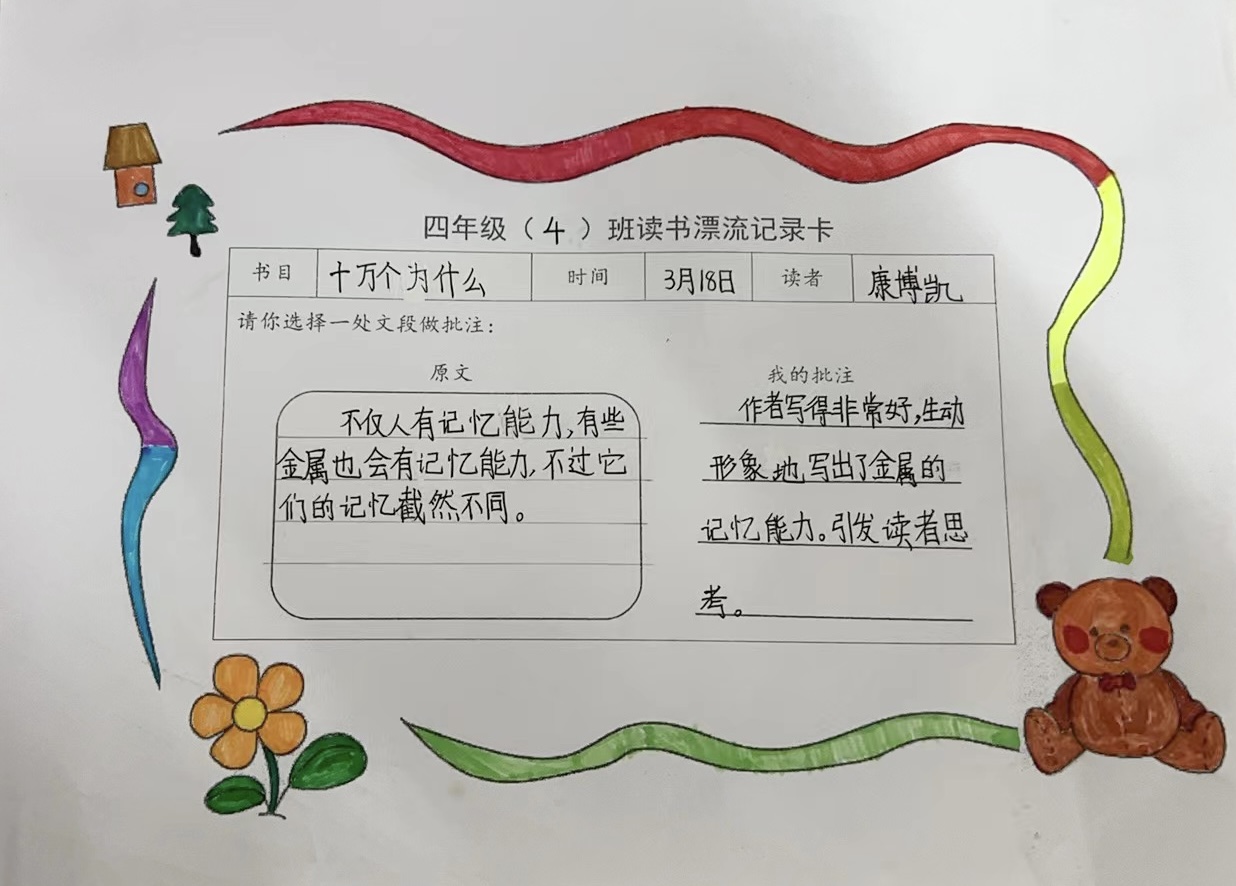 四年级（4）班读书漂流记录卡
书目 十万个为什么 时间 3月18日 读者 康博凯
请你选择一处文段做批注：
原文
不仅人有记忆能力,有些
金属也会有记忆能力,不过它
们的记忆截然不同。
我的批注
作者写得非常好,生动
形象地写出了金属的
记忆能力。引发读者思
考。